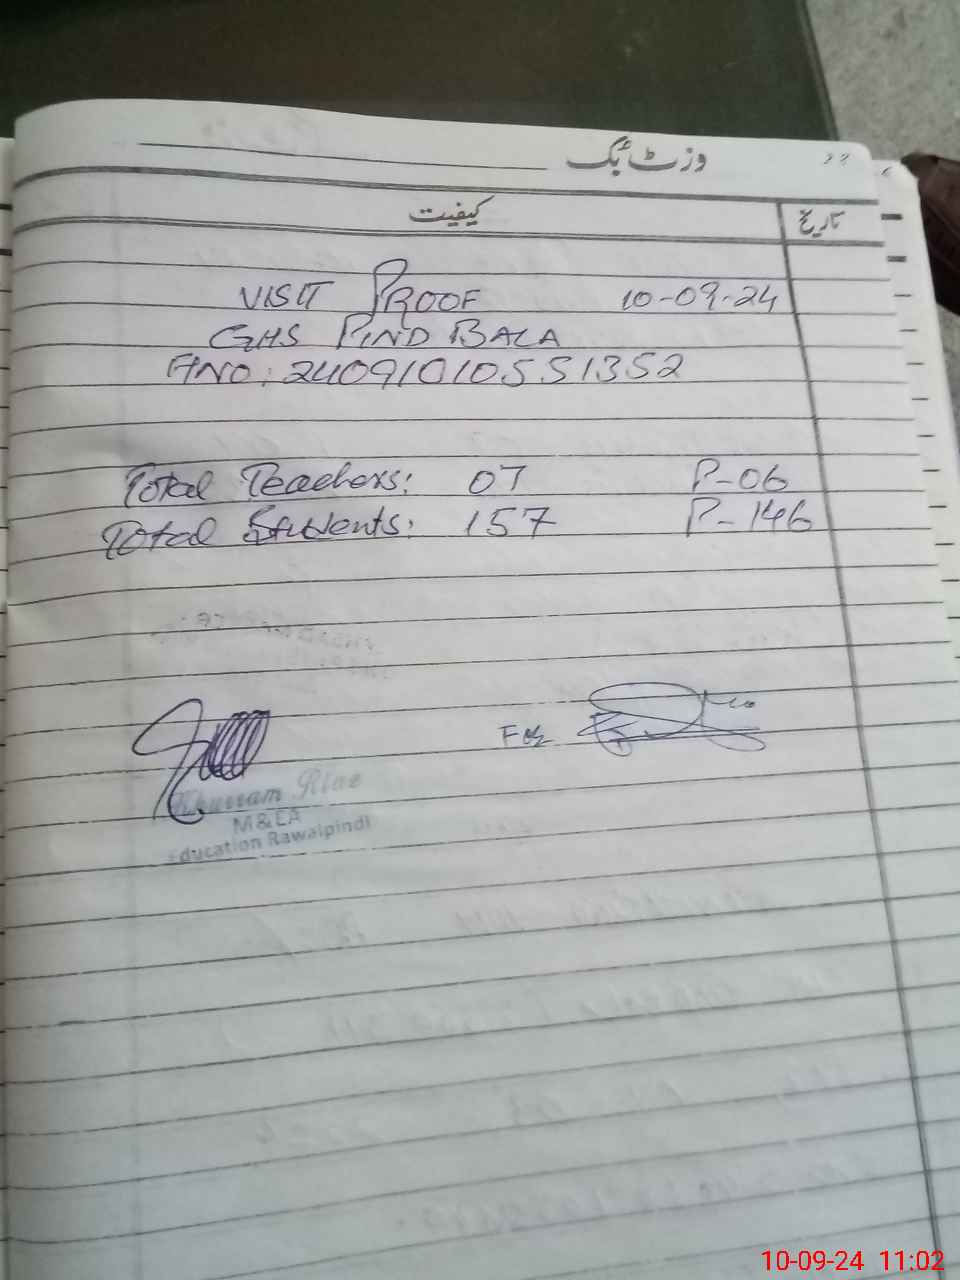 وزٹ بک
کیفیت تاریخ
VISIT PROOF 10-09-24
GHS PIND BALA
ANO: 240910105551352
Total Teachers: 07 P-06
Total Students: 157 P-146
For
Khurram Riaz
M&EA
Education Rawalpindi
10-09-24 11:02